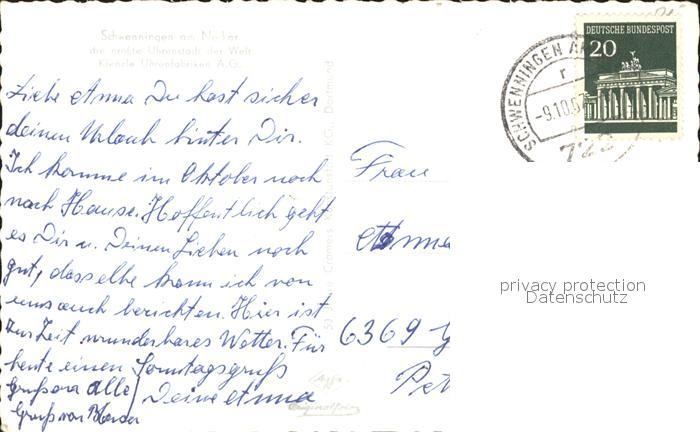 Schwenningen am Neckar
die größte Uhrenstadt der Welt
Kienzle Uhrenfabriken A.G.
DEUTSCHE BUNDESPOST
20
SCHWENNINGEN AM
-9.10.6
Liebe Anna Du hast sicher
deinen Urlaub hinter Dir.
Ich komme im Oktober noch
nach Hause. Hoffentlich geht
es Dir u. Deinen Lieben noch
gut, dasselbe kann ich von
uns auch berichten. Hier ist
zur Zeit wunderbares Wetter. Für
heute einen Sonntagsgruß
Gruß an alle Deine Anna
Gruß von
Frau
Anna
6369
Pet
Cramers Kunstanstalt KG., Dortmund
privacy protection
Datenschutz